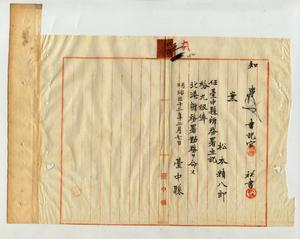 知事 書記官 秘書
案
松本精八郎
任臺中縣辨務署主記
給九級俸
北港辨務署勤務ヲ命ス
明治三十二年二月七日
臺中縣
臺中縣